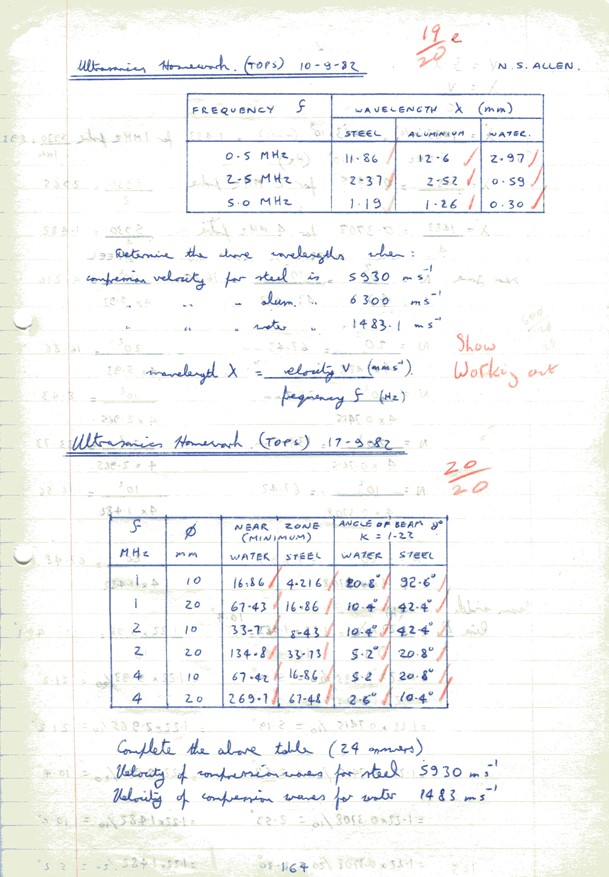 19/20 e
Ultrasonics Homework. (TOPS) 10-9-82 N.S. ALLEN.
FREQUENCY f WAVELENGTH λ (mm)
STEEL ALUMINIUM WATER.
0.5 MHz 11.86 12.6 2.97
2.5 MHz 2.37 2.52 0.59
5.0 MHz 1.19 1.26 0.30
Determine the above wavelengths when:
compression velocity for steel is 5930 ms⁻¹
" " " alum. " 6300 ms⁻¹
" " " water " 1483.1 ms⁻¹
Show
Working out
wavelength λ = velocity V (mms⁻¹)
frequency f (Hz)
Ultrasonics Homework. (TOPS) 17-9-82
20/20
f Ø NEAR ZONE (MINIMUM) ANGLE OF BEAM γ° K = 1.22
MHz mm WATER STEEL WATER STEEL
1 10 16.86 4.216 20.8° 92.6°
1 20 67.43 16.86 10.4° 42.4°
2 10 33.7 8.43 10.4° 42.4°
2 20 134.8 33.73 5.2° 20.8°
4 10 67.42 16.86 5.2 20.8°
4 20 269.7 67.48 2.6° 10.4°
Complete the above table (24 answers)
Velocity of compression waves for steel 5930 ms⁻¹
Velocity of compression waves for water 1483 ms⁻¹
164